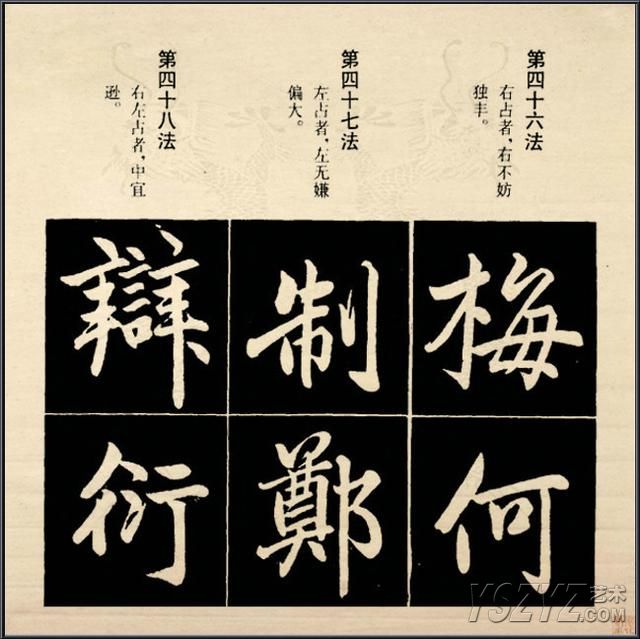 第四十六法
右占者，右不妨
独丰。
梅
何
第四十七法
左占者，左无嫌
偏大。
制
鄭
第四十八法
右左占者，中宜
逊。
辯
衍
YSZYZ艺术.COM